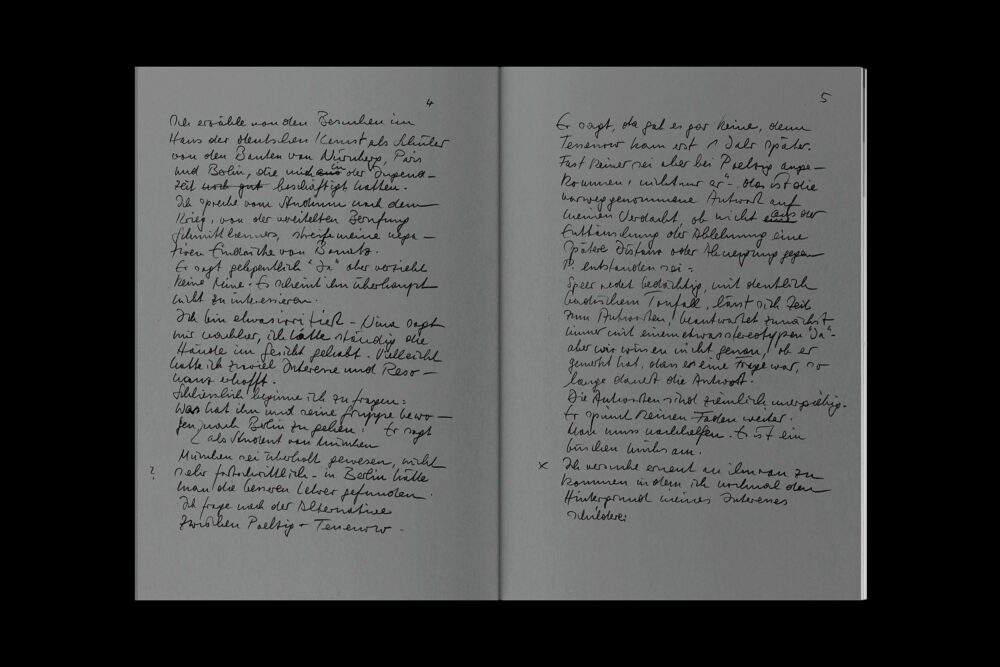 4
Ich erzähle von den Besuchen im
Haus der deutschen Kunst als Schüler
von den Bauten von Nürnberg, Paris
und Berlin, die mich in der Jugend–
zeit noch gut beschäftigt hatten.
Ich spreche vom Studium nach dem
Krieg, von der vereitelten Berufung
Schmitthenners, streife meine nega–
tiven Eindrücke von Bonatz.
Er sagt gelegentlich "Ja" aber verzieht
keine Mine. Es scheint ihn überhaupt
nicht zu interessieren.
Ich bin etwas irritiert – Nina sagt
mir nachher, ich hätte ständig die
Hände im Gesicht gehabt. Vielleicht
hatte ich zuviel Interesse und Reso–
nanz erhofft.
Schliesslich beginne ich zu fragen:
Was hat ihn und seine Gruppe bewo–
gen, nach Berlin zu gehen? Er sagt
als Student von München
München sei überholt gewesen, nicht
?
sehr fortschrittlich – in Berlin hätte
man die besseren Lehrer gefunden.
Ich frage nach der Alternative
zwischen Poelzig + Tessenow.
5
Er sagt, da gab es gar keine, denn
Tessenow kam erst 1 Jahr später.
Fast keiner sei aber bei Poelzig ange–
kommen, nicht nur er –, das ist die
vorweggenommene Antwort auf
meinen Verdacht, ob nicht aus der
Enttäuschung der Ablehnung eine
spätere Distanz oder Abneigung gegen
P. entstanden sei –
Speer redet bedächtig, mit deutlich
badischem Tonfall, lässt sich Zeit
zum Antworten, beantwortet zunächst
immer mit einem etwas stereotypen "Ja" –
aber wir wissen nicht genau, ob er
gemerkt hat, dass es eine Frage war, so
lange dauert die Antwort.
Die Antworten sind ziemlich unergiebig.
Er spinnt keinen Faden weiter.
Man muss nachhelfen. Es ist ein
bisschen mühsam.
x Ich versuche erneut an ihn ran zu
kommen indem ich nochmal den
Hintergrund meines Interesses
schildere: